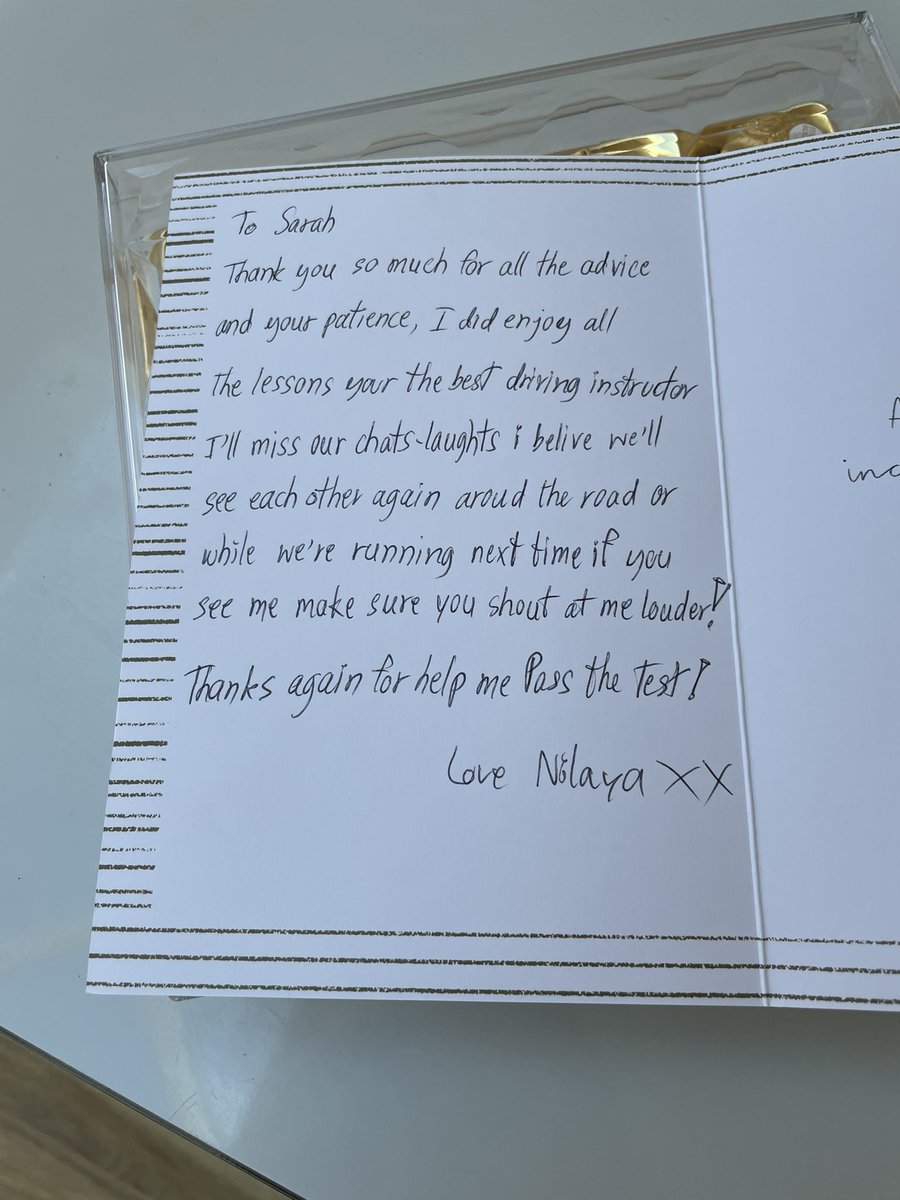 To Sarah
Thank you so much for all the advice
and your patience, I did enjoy all
the lessons your the best driving instructor
I'll miss our chats-laughts i belive we'll
see each other again aroud the road or
while we're running next time if you
see me make sure you shout at me louder!
Thanks again for help me Pass the Test!
Love Nilaya XX